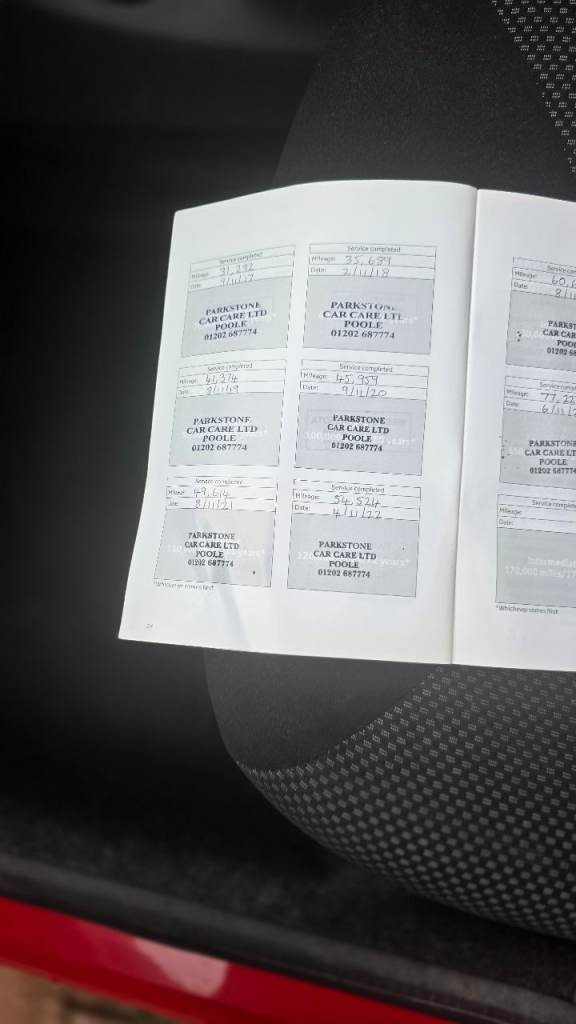 Service completed
Mileage: 31,292
Date: 9/11/17
PARKSTONE
CAR CARE LTD
POOLE
01202 687774
Service completed
Mileage: 35,689
Date: 2/11/18
PARKSTONE
CAR CARE LTD
POOLE
01202 687774
Service completed
Mileage: 41,374
Date: 8/11/19
PARKSTONE
CAR CARE LTD
POOLE
01202 687774
Service completed
Mileage: 45,959
Date: 9/11/20
PARKSTONE
CAR CARE LTD
POOLE
01202 687774
Service completed
Mileage: 49,614
Date: 8/11/21
PARKSTONE
CAR CARE LTD
POOLE
01202 687774
Service completed
Mileage: 54,524
Date: 4/11/22
PARKSTONE
CAR CARE LTD
POOLE
01202 687774
*Whichever comes first
Service comple
Mileage: 60,6
Date: 8/11
PARKSTON
CAR CAR
POO
01202 68
Service comp
Mileage: 77,22
Date: 6/11/2
PARKSTON
CAR CARE LT
POOLE
01202 68777
Service complet
Mileage:
Date:
Intermediat
170,000 miles/17
*Whichever comes first